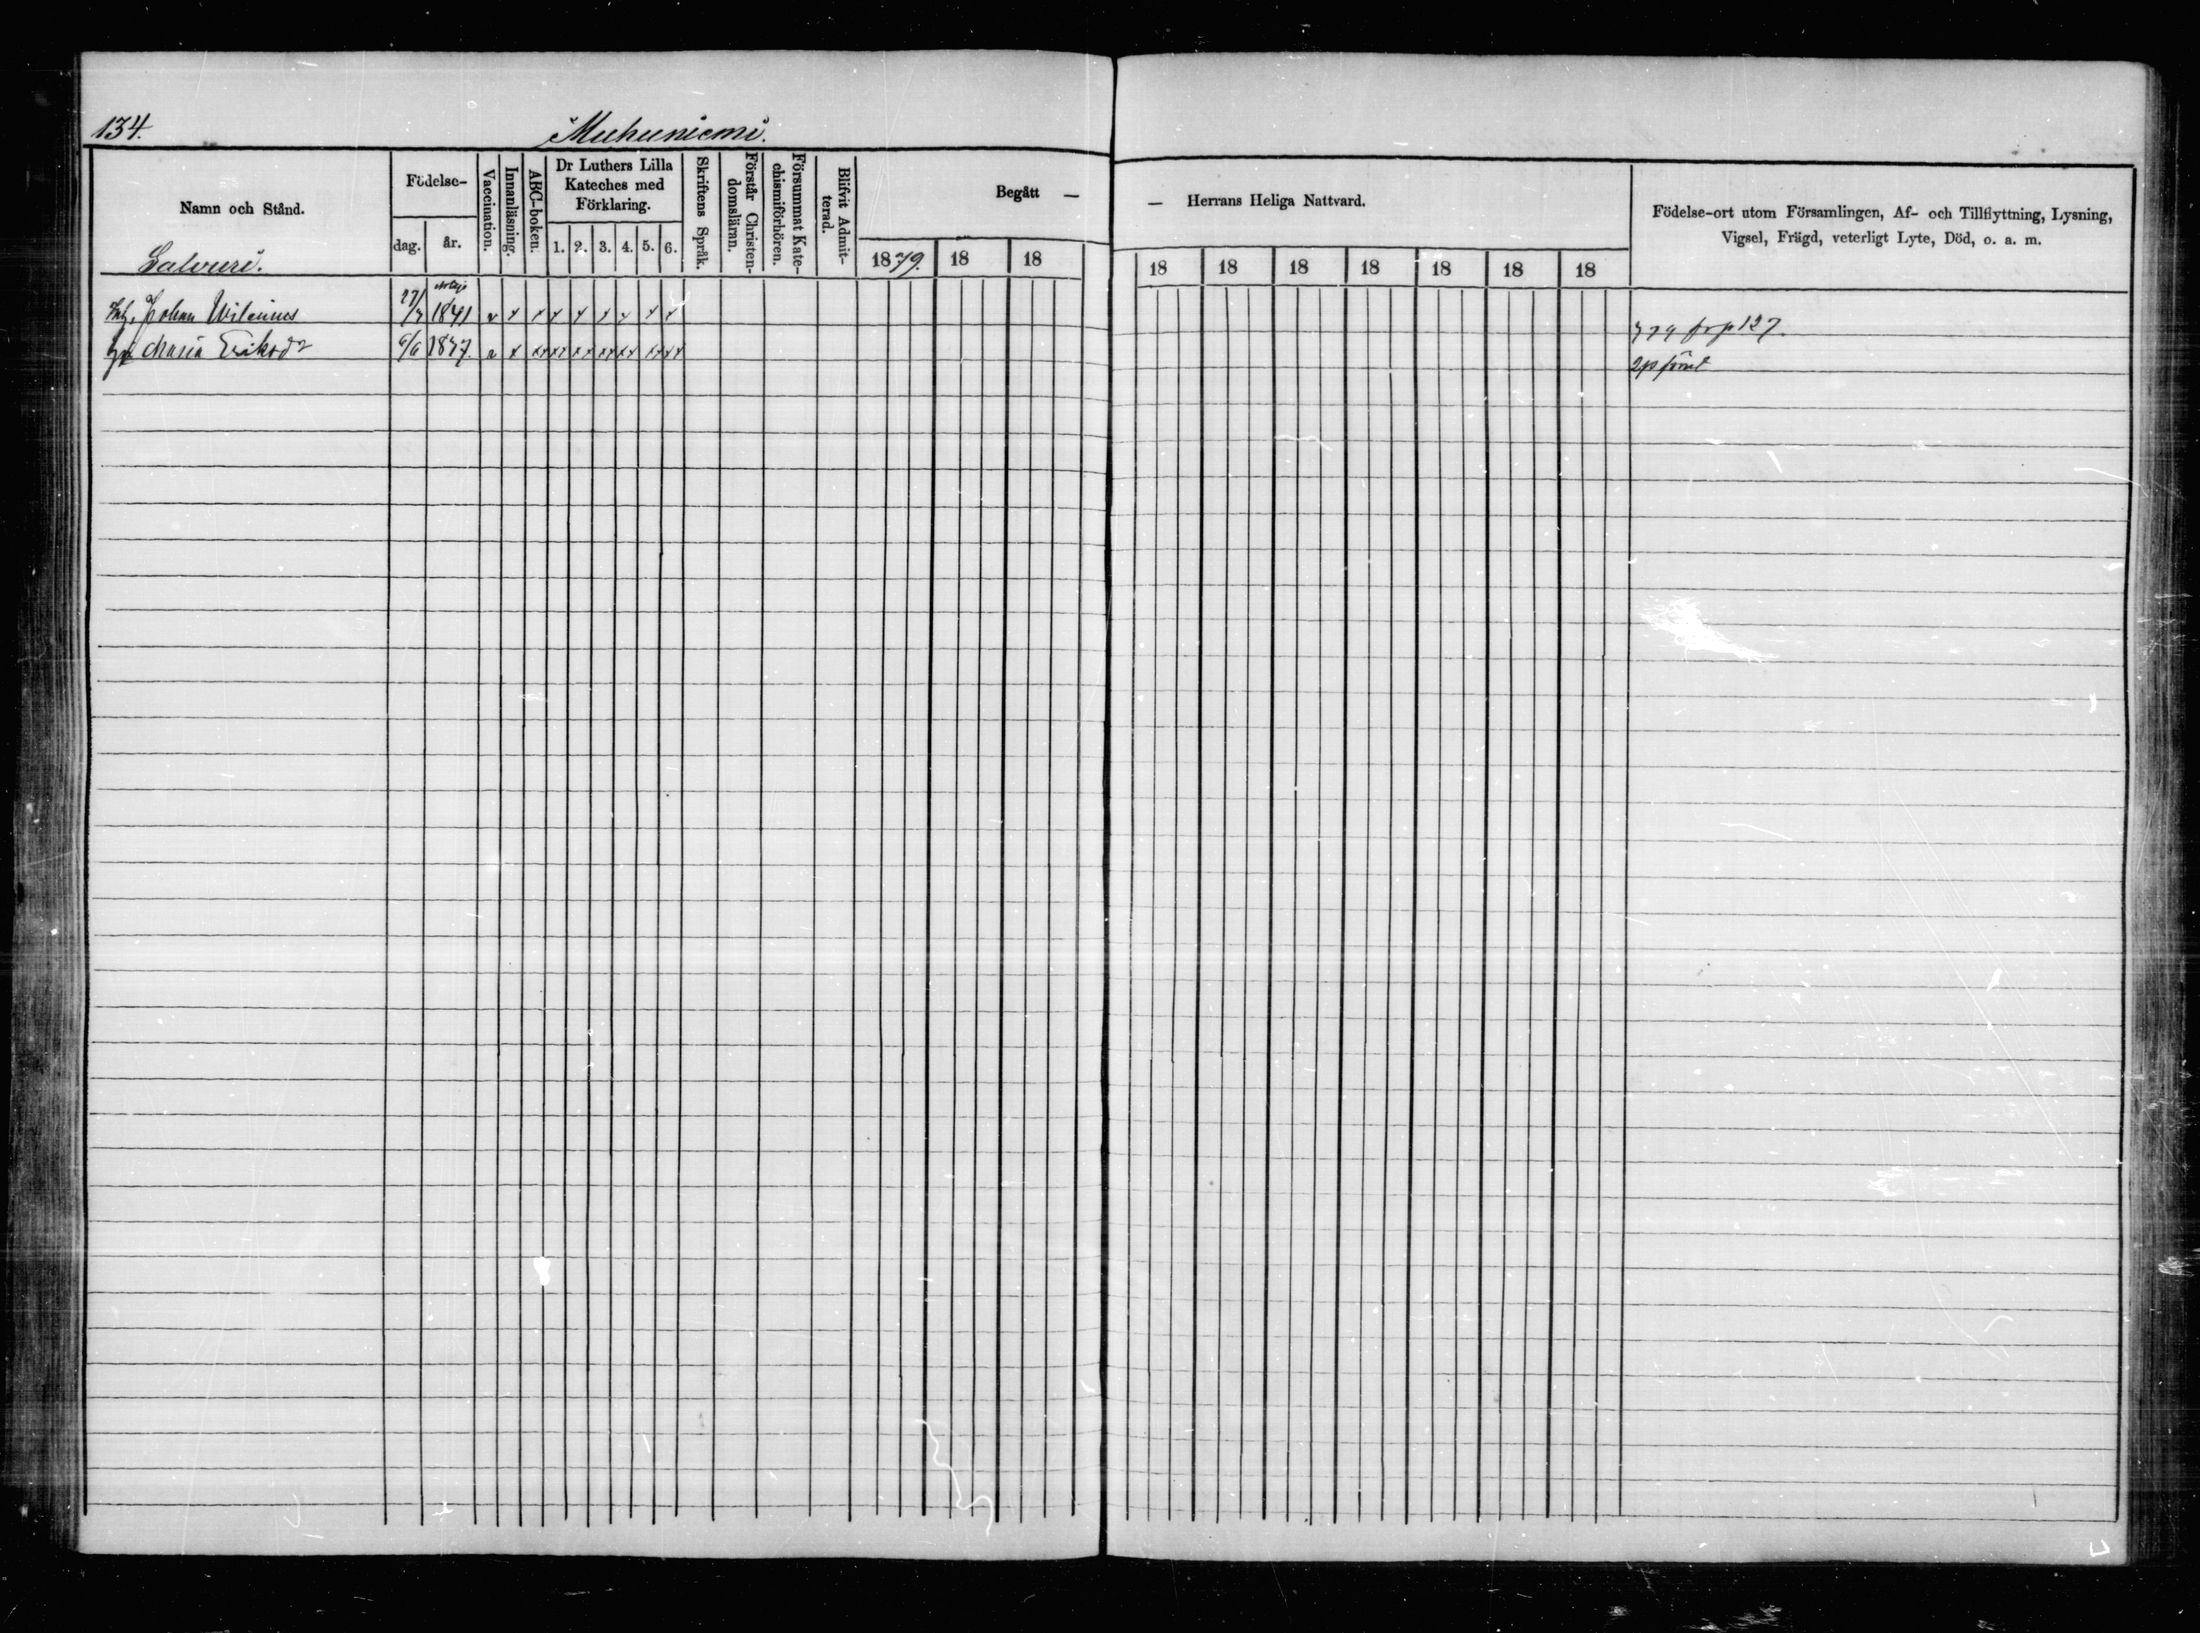 134.
Muhuniemi.
Namn och Stånd.
Födelse-
dag.
år.
Vaccination.
Innanläsning.
ABC-boken.
Dr Luthers Lilla
Kateches med
Förklaring.
1. 2. 3. 4. 5. 6.
Skriftens Språk.
Förstår Christen-
domsläran.
Försummat Kate-
chismiförhören.
Blifvit Admit-
terad.
Begått —
— Herrans Heliga Nattvard.
1879. 18 18
18 18 18 18 18 18 18
Födelse-ort utom Församlingen, Af- och Tillflyttning, Lysning,
Vigsel, Frägd, veterligt Lyte, Död, o. a. m.
Salvuri.
Johan Wilenius 27/7 1841 v x x x x x x x x
Maria Eriksdr 6/6 1837. v x xx xx xx xx xx xx xx
379 fr p 127.